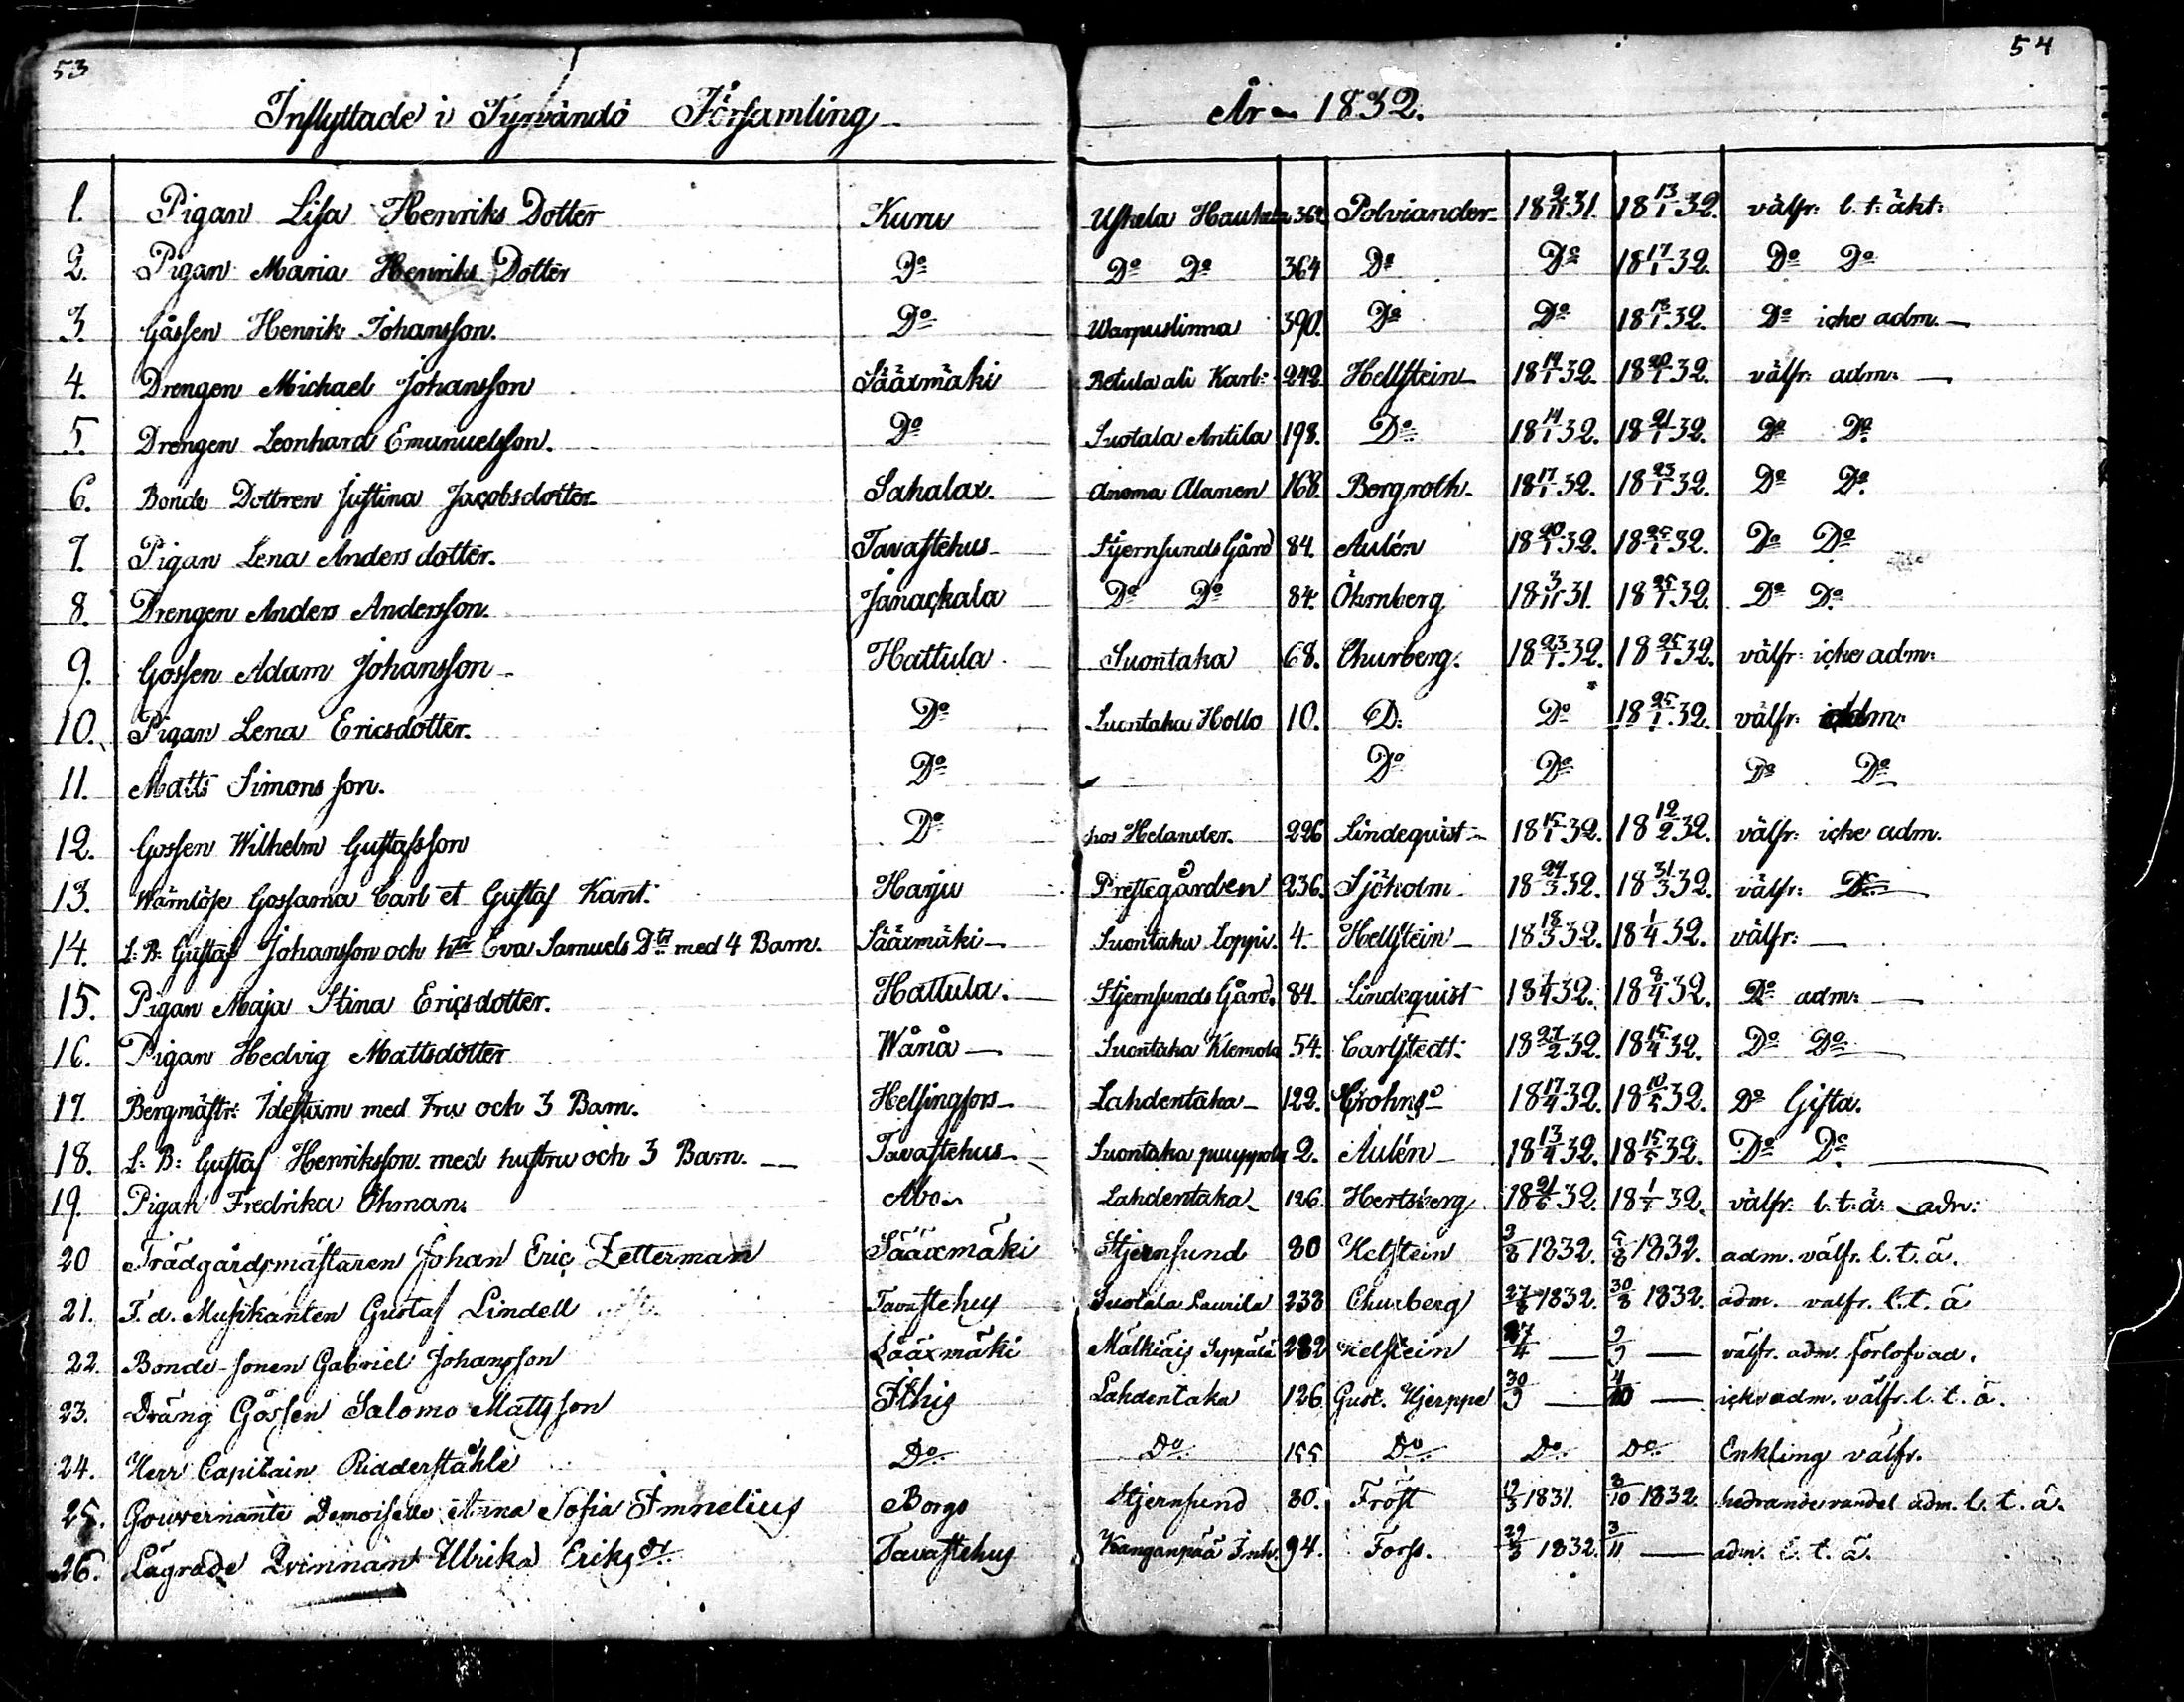 53
54
Inflyttade i Tyrvändö Församling
År 1832.
1. Pigan Lisa Henriks Dotter Kuru Uskela Hauhala 364 Polviander 18 9/11 31. 18 13/1 32. välfr: l. t: äkt:
2. Pigan Maria Henriks Dotter Do Do Do 364 Do Do 18 17/1 32. Do Do
3. Gåssen Henrik Johansson. Do Warpuslinna 390. Do Do 18 13/1 32. Do icke adm. —
4. Drengen Michael Johansson Sääxmäki Retula ali Karl: 242 Hellstein 18 14/1 32. 18 20/1 32. välfr: adm: —
5. Drengen Leonhard Emanuelsson. Do Suotala Antila 198. Do 18 14/1 32. 18 21/1 32. Do Do
6. Bonde Dottren Justina Jacobsdotter Sahalax. Anoma Alanen 168. Bergroth. 18 17/1 32. 18 23/1 32. Do Do
7. Pigan Lena Anders dotter. Tavastehus Stjernsunds Gård 84. Aulén 18 20/1 32. 18 25/1 32. Do Do
8. Drengen Anders Andersson. Janackala Do Do 84. Öhrnberg 18 3/11 31. 18 25/1 32. Do Do
9. Gossen Adam Johansson Hattula Suontaka 68. Churberg. 18 23/1 32. 18 25/1 32. välfr: icke adm:
10. Pigan Lena Ericsdotter. Do Suontaka Hollo 10. D: Do 18 25/1 32. välfr: adm:
11. Matts Simons son. Do Do Do Do Do
12. Gossen Wilhelm Gustafsson Do hos Helander. 226 Lindequist 18 15/1 32. 18 12/2 32. välfr: icke adm.
13. Wärnlöse Gossarna Carl et Gustaf Kant: Harju Prestegården 236. Sjöholm 18 24/3 32. 18 31/3 32. välfr: Do
14. L: B: Gustaf Johansson och htr Eva Samuels Dtr med 4 Barn. Sääxmäki Suontaka Loppi. 4. Hellstein 18 18/3 32. 18 1/4 32. välfr: —
15. Pigan Maja Stina Ericsdotter. Hattula. Stjernsunds Gård. 84. Lindequist 18 1/4 32. 18 8/4 32. Do adm: —
16. Pigan Hedvig Mattsdotter Wånå — Suontaka Klemola 54. Carlstedt. 18 27/2 32. 18 15/4 32. Do Do
17. Bergmästr: Idestam med Fru och 3 Barn. Helsingfors Lahdentaka 122. Crohns 18 17/4 32. 18 10/5 32. Do Gifta.
18. L: B: Gustaf Henriksson. med hustru och 3 Barn. — Tavastehus Suontaka puuppola 2. Aulén 18 13/4 32. 18 15/5 32. Do Do
19. Pigan Fredrika Öhman. Åbo Lahdentaka 126. Hertsberg 18 21/6 32. 18 1/7 32. välfr: l. t: ä: adm:
20 Trädgårdsmästaren Johan Eric Zetterman Sääxmäki Stjernsund 80 Helstein 3/8 1832. 5/8 1832. adm. välfr. l. t. ä.
21. F. d. Musikanten Gustaf Lindell Tavastehus Suotala Laurila 233 Churberg 27/8 1832. 30/8 1832. adm. välfr. l. t. ä
22. Bonde-sonen Gabriel Johansson Sääxmäki Mälkiäis Seppälä 282 Helstein 27/4 — 9/9 — välfr. adm. förlofvad.
23. Dräng Gossen Salomo Mattsson Ithis Lahdentaka 126 Gust. Hjerppe 30/9 — 4/10 — icke adm. välfr. l. t. ä.
24. Herr Capitain Ridderståhle Do. Do. 155 Do. Do. Do. Enkling välfr.
25. Gouvernante Demoiselle Anna Sofia Imnelius Borgo Stjernsund 80. Frost 12/3 1831. 3/10 1832. hedrande vandel adm. l. t. ä.
26. Lägrade Qvinnan Ulrika Eriks dr. Tavastehus Kanganpää Inh. 94. Forss. 29/3 1832. 3/11 — adm. l. t. ä.